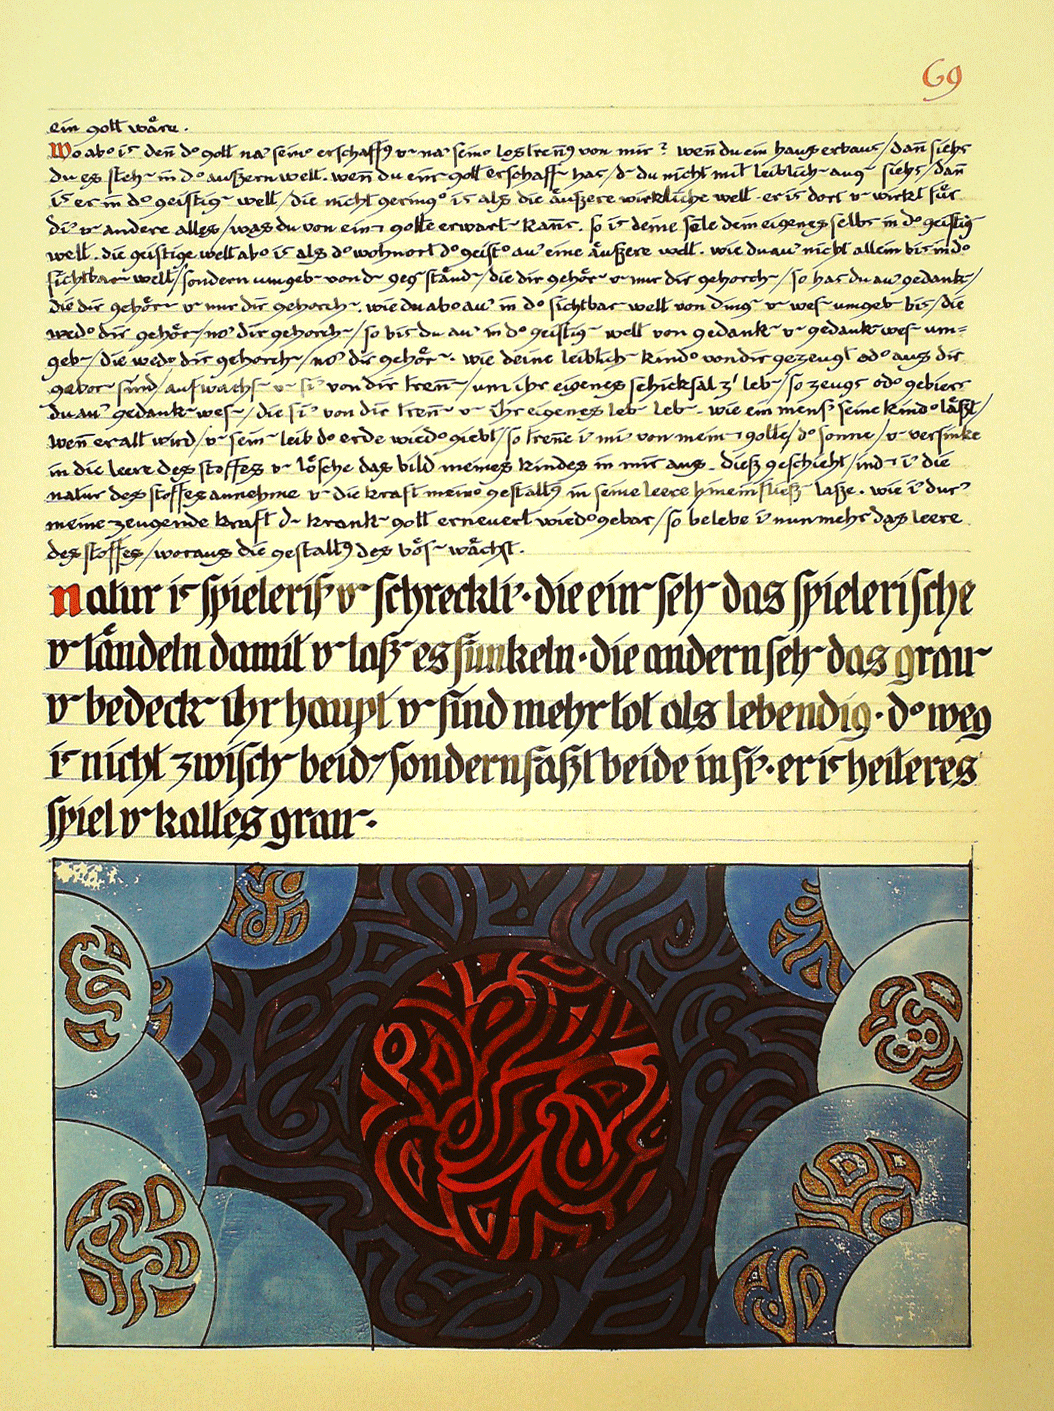 69
ein gott wäre.
Wo abo is den̄ do gott na' seino erschaff's v na' seino lostren's von mir? wen̄ du ein haus erbaus/dan̄ siehs
du es steh in do äußern welt. wen̄ du eine gott erschaff has/d du nicht mit leiblich aug siehs/dan̄
is er in do geistig welt/die nicht gering° is als die äußere wirkliche welt. er is dort v wirkt für
di' v andere alles/was du von ein gotte erwart kan̄s. so is deine sele dein eigenes selbs in do geistig
welt. die geistige welt abo is als do wohnort do geist° au' eine äußere welt. wie du au' nicht allein bis in do
sichtbar welt/sondern umgeb von d geg ständ/die dir gehör v nur dir gehorch/so has du au' gedank/
die dir gehör v nur dir gehorch. wie du abo au' in do sichtbar welt von ding v wes umgeb bis/die
wedo dir gehör/no' dir gehorch/so bis du au' in do geistig welt von gedank v gedank wes um=
geb/die wedo dir gehorch/no' dir gehör. wie deine leiblich kindo von dir gezeugt odo aus dir
gebor sind/aufwachs v si' von dir tren̄/um ihr eigenes schicksal z' leb/so zeugs odo gebiers
du au' gedank wes/die si' von dir tren̄ v ihr eigenes leb leb. wie ein mens' seine kindo läßt/
wen̄ er alt wird/v sein leib do erde wiedo giebt/so tren̄e i' mi' von mein gotte/do sonne/v versinke
in die leere des stoffes v lösche das bild meines kindes in mir aus. dieß geschieht/ind i' die
natur des stoffes annehme v die kraft meino gestalt's in seine leere hineinfließ laße. wie i' dur'
meine zeugende kraft d krank gott erneuert wiedo gebar/so belebe i' nunmehr das leere
des stoffes/woraus die gestalt's des bös wächst.
Natur is spieleris' v schreckli'. die ein seh das spielerische
v tändeln damit v laß es funkeln. die andern seh das grau
v bedeck ihr haupt v sind mehr tot als lebendig. do weg
is nicht zwisch beid/sondern faßt beide in si'. er is heiteres
spiel v kaltes grau.